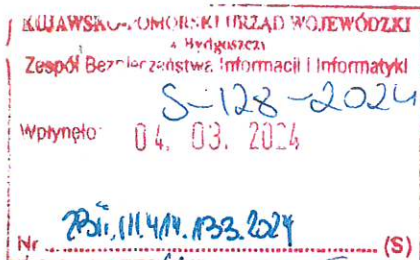 KUJAWSKO-POMORSKI URZĄD WOJEWÓDZKI
w Bydgoszczy
Zespół Bezpieczeństwa Informacji i Informatyki
S-128-2024
Wpłynęło 04. 03. 2024
Nr ZBII.III.414.133.2024 (S)